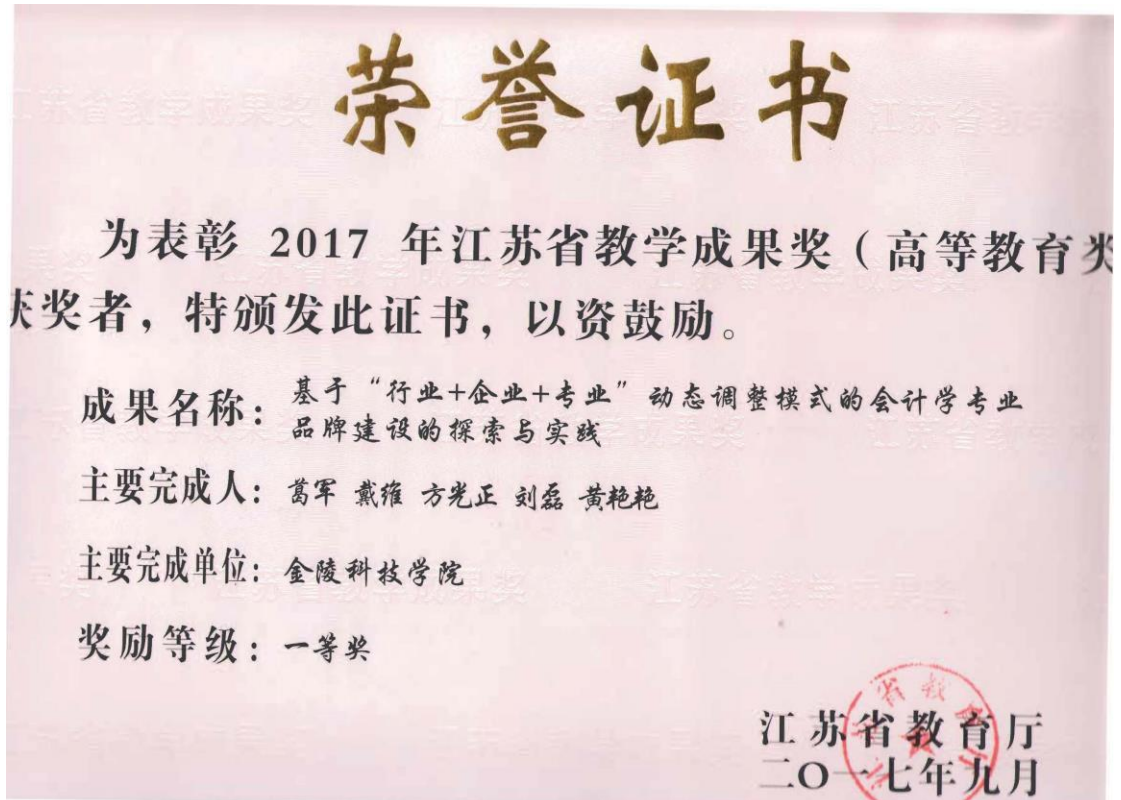 荣誉证书
为表彰 2017 年江苏省教学成果奖（高等教育类
获奖者，特颁发此证书，以资鼓励。
成果名称：基于“行业+企业+专业”动态调整模式的会计学专业
品牌建设的探索与实践
主要完成人：葛军 戴维 方光正 刘磊 黄艳艳
主要完成单位：金陵科技学院
奖励等级：一等奖
江苏省教育厅
二〇一七年九月